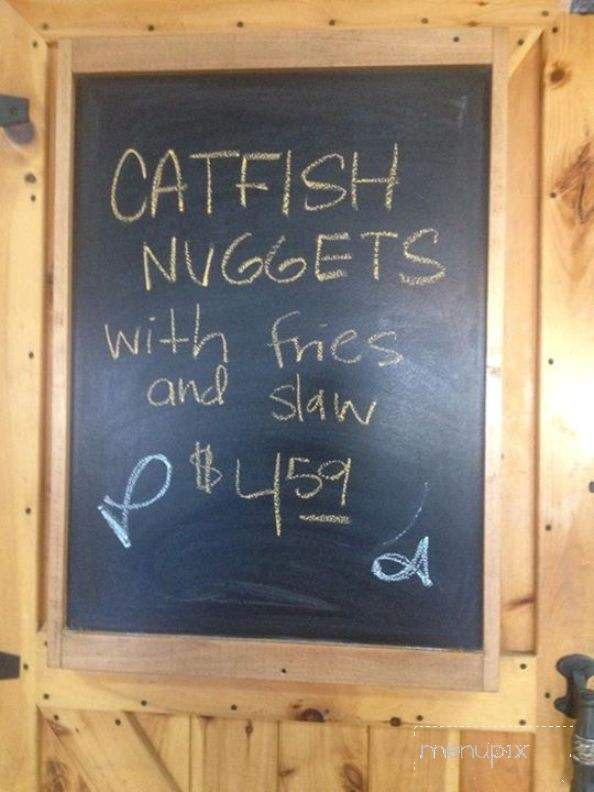 CATFISH
NUGGETS
with fries
and slaw
$4 59
menupix